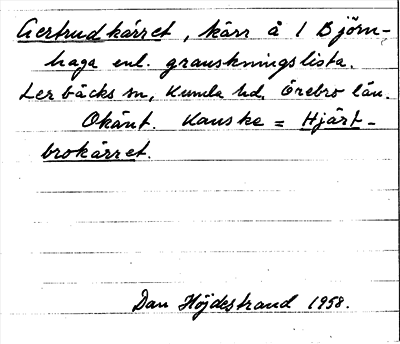 Gertrudkärret, kärr å 1 Björn-
haga enl. granskningslista.
Lerbäcks sn, Kumla hd. Örebro län.
Okänt. Kanske = Hjärt-
brokärret.
Dan Höjdestrand 1958.